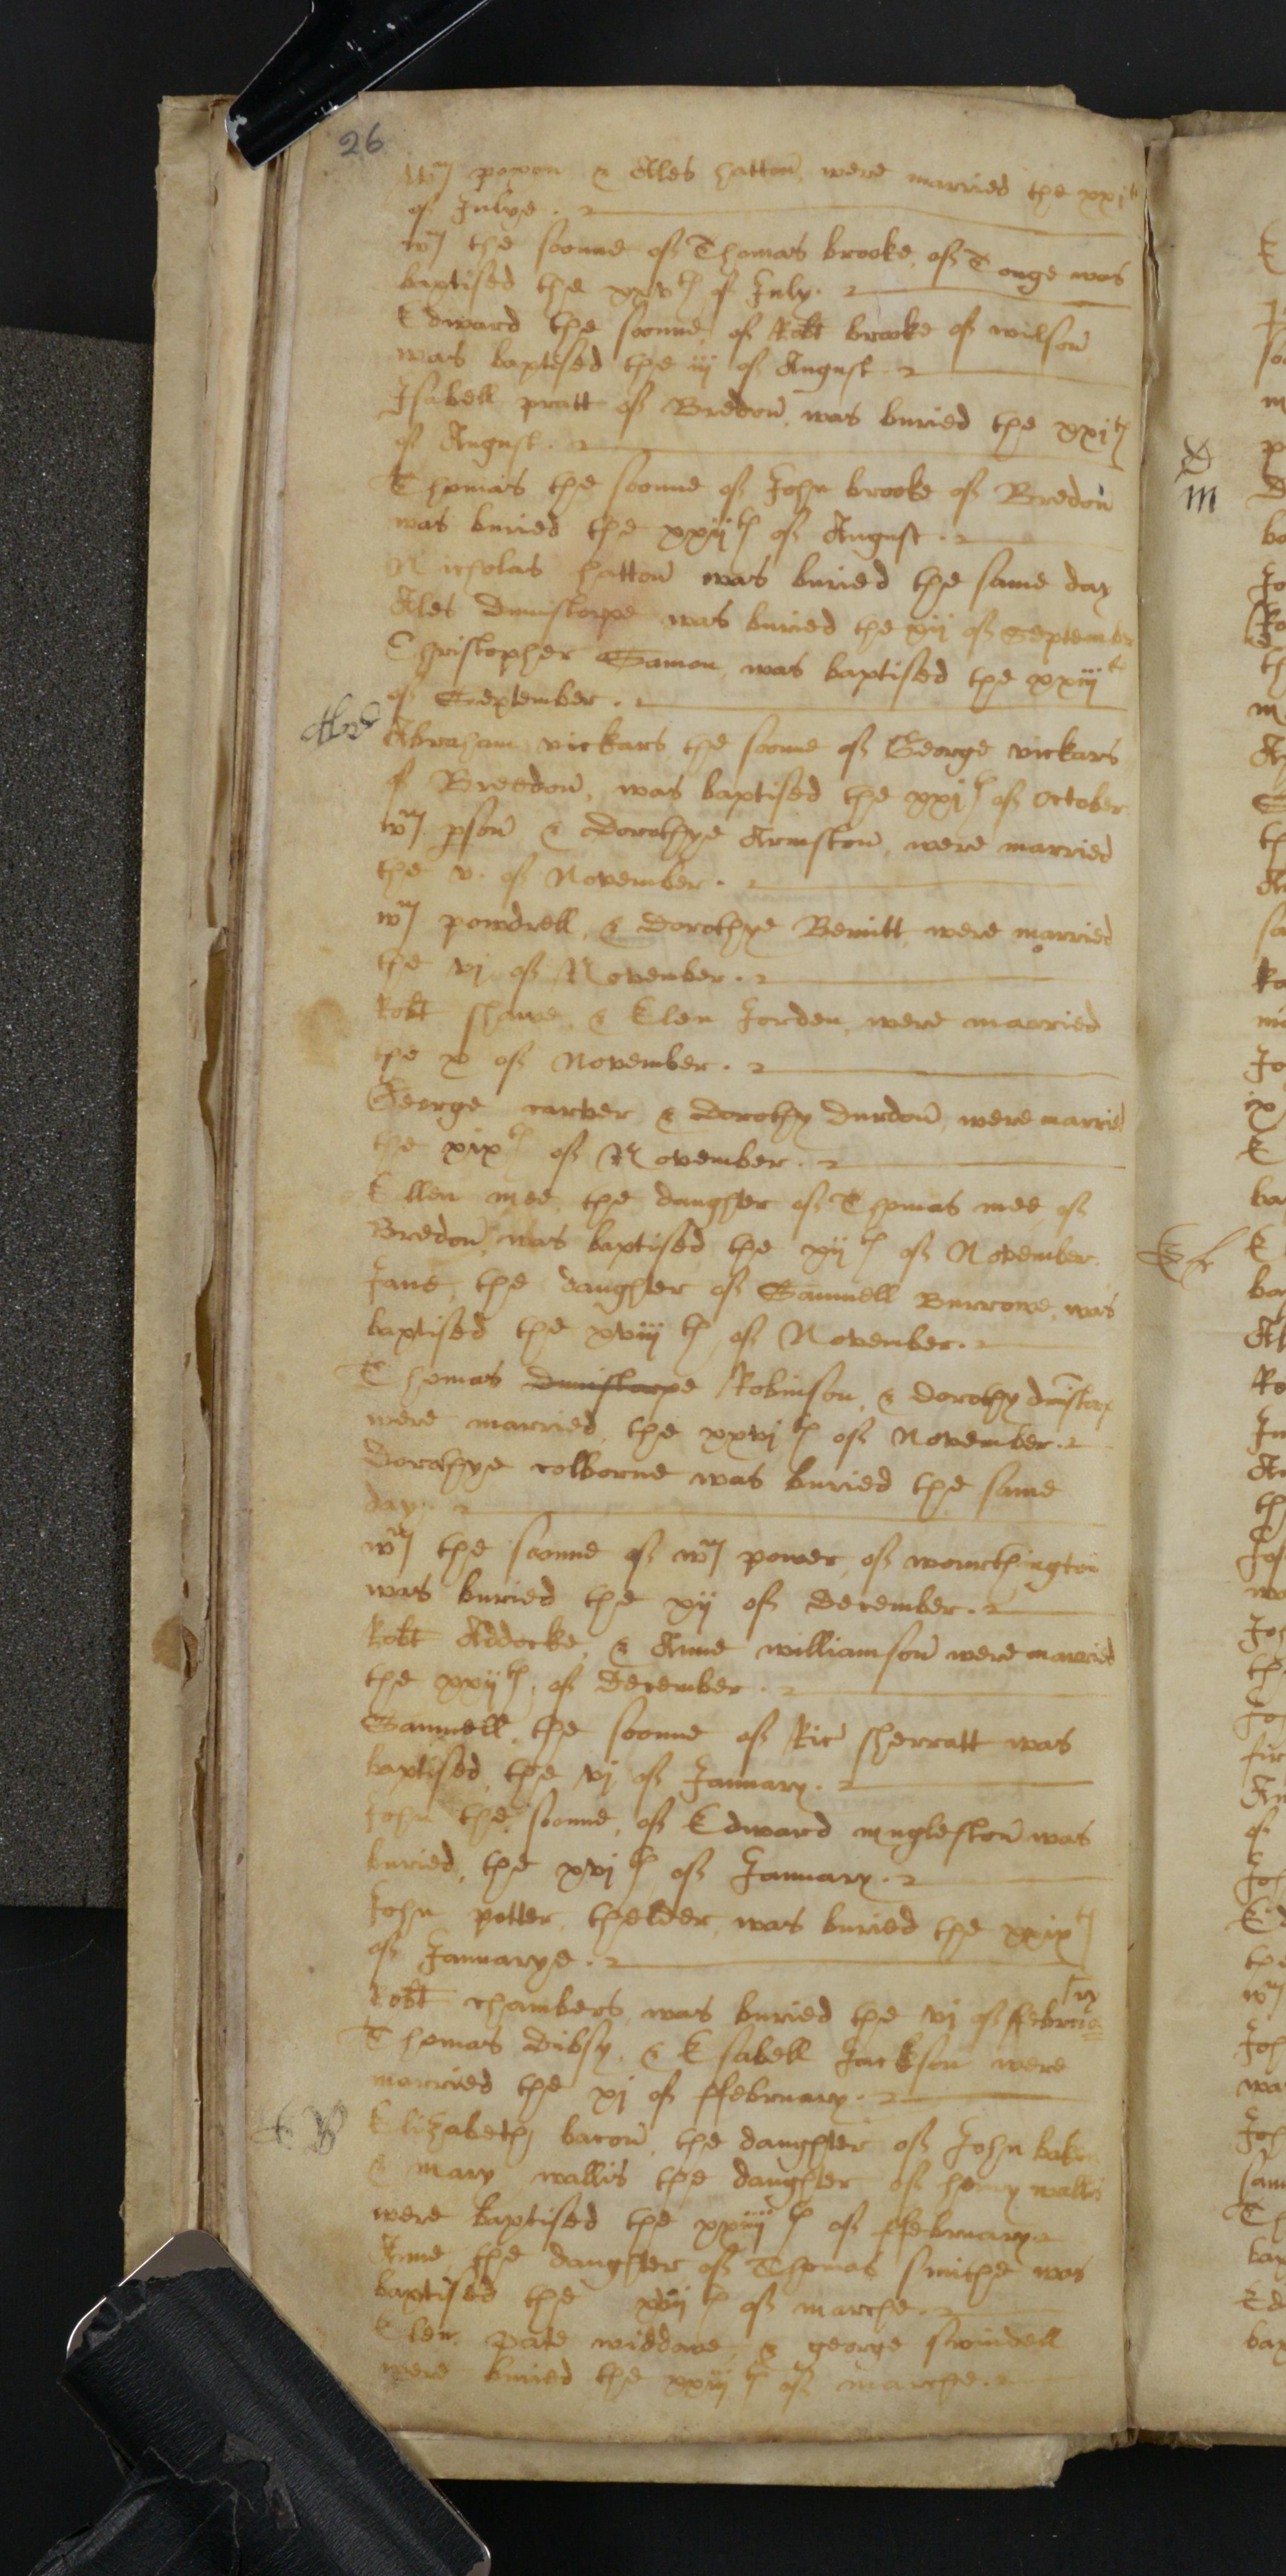 26
Wm poxon & Alles hatton, were married the xxith
of Julye.
wm the soonne of Thomas brooke, of Tonge was
baptised the xxvth of July.
Edward the soonne, of Robt brooke of wilson
was baptised the iij of August.
Isabell pratt of Bredon, was buried the xxjth
of August.
Thomas the soonne of John brooke of Bredon
was buried the xxijth of August.
Nicholas hatton was buried the same day
Ales Dunistorpe was buried the xij of September
Christopher Samon, was baptised the xxiijth
of September.
Abraham vickars the soonne of George vickars
of Breedon, was baptised the xxjth of October
wm pson & Dorothye Armston, were married
the v. of November.
wm powdrell, & Dorothye Bemitt, were married
the vj of November.
Robt shawe, & Elen Jorden, were married
the x of November.
George carver & Dorothy Durdon, were married
the xixth of November.
Ellen mee, the daughter of Thomas mee, of
Bredon, was baptised, the xijth of November.
Jane, the daughter of Samuell Burrowe, was
baptised the xviijth of November.
Thomas Dunistorpe Robinson, & Dorothy dunistorp
were married, the xxvjth of November.
Dorothye colborne was buried the same
day.
wm the soonne of wm power, of wourthington
was buried the xij of December.
Robt Addocke, & Anne williamson were married
the xxijth, of December.
Samuell, the soonne of Ric sherratt was
baptised, the vj of January.
John the soonne, of Edward mugleston was
buried, the xvjth of January.
John potter, thelder, was buried the xxixth
of Januarye.
Robt chambers, was buried the vj of ffebrua
ry
Thomas Dibsy, & Esabell Jackson were
married the xj of ffebruary.
Elizabeth, bacon, the daughter of John baken
& mary wallis the daughter of henry wallis
were baptised the xxiiijth of ffebruary
Anne, the daughter of Thomas smithe was
baptised the xvijth of marche.
Elen pate widdowe, & george swindell
were buried the xxiijth of marche.